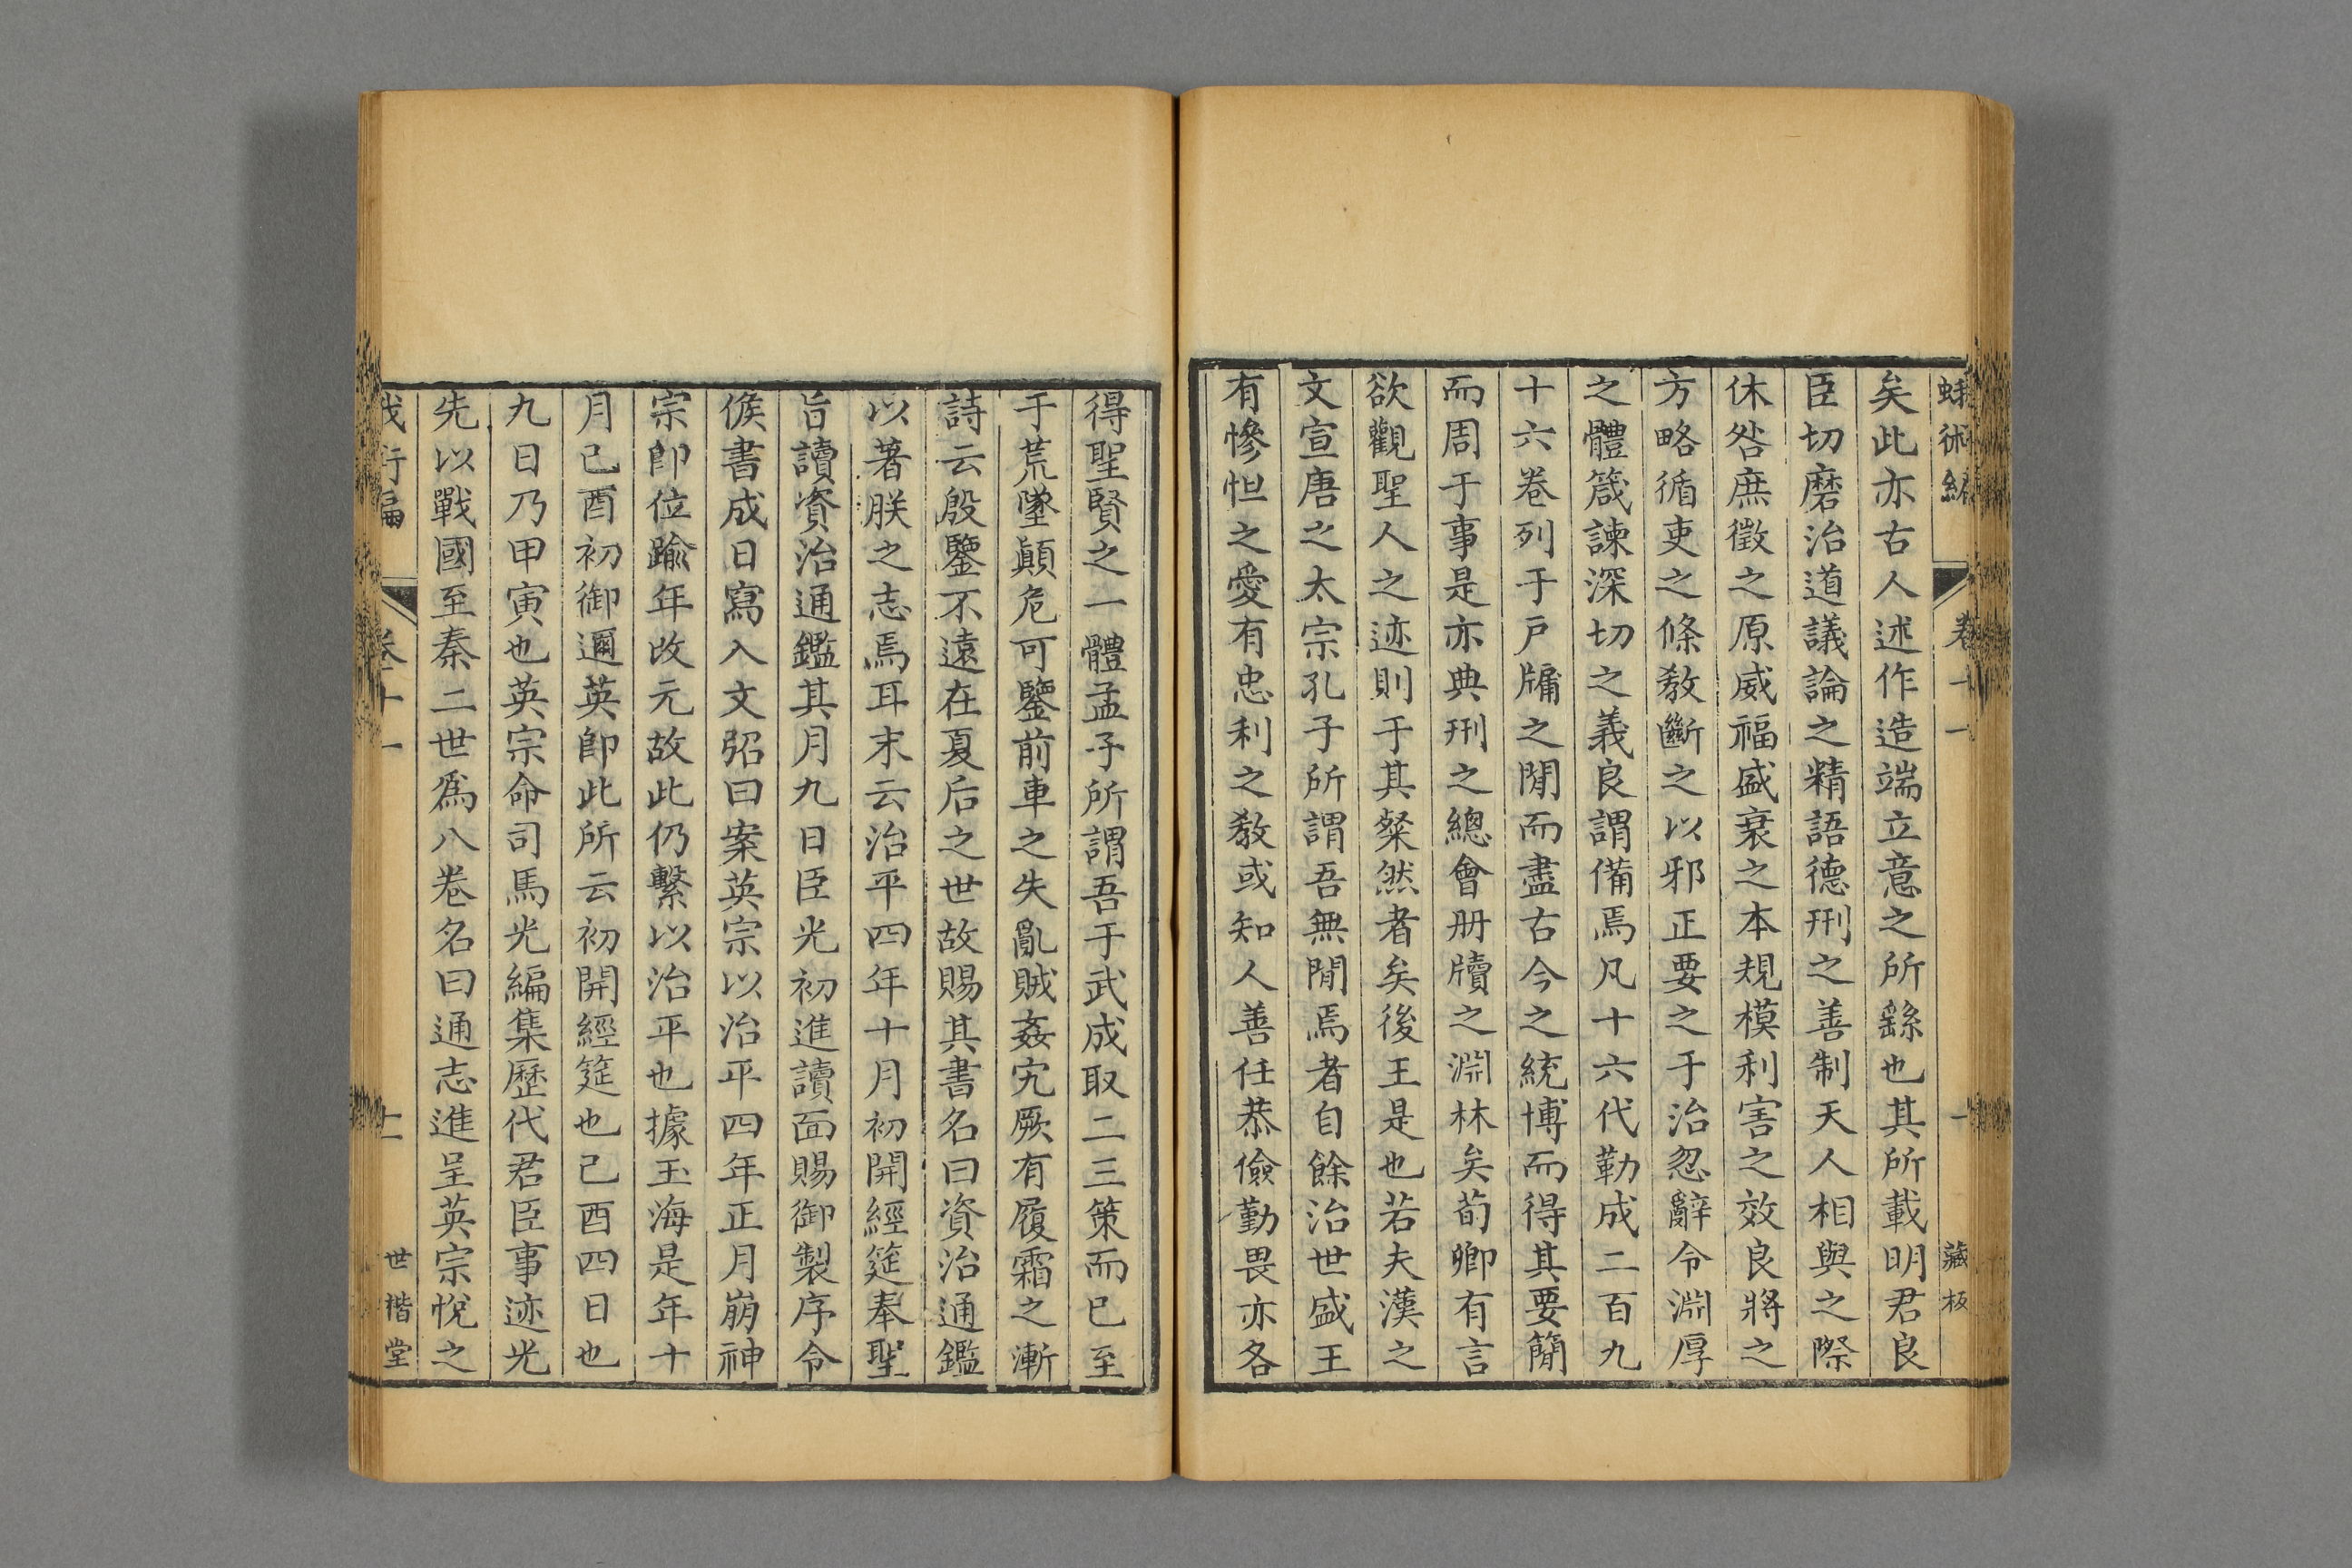 蛾術編 卷十一 一 藏板
矣此亦古人述作造端立意之所繇也其所載明君良
臣切磨治道議論之精語德刑之善制天人相與之際
休咎庶徵之原威福盛衰之本規模利害之效良將之
方略循吏之條敎斷之以邪正要之于治忽辭令淵厚
之體箴諫深切之義良謂備焉凡十六代勒成二百九
十六卷列于戸牖之閒而盡古今之統博而得其要簡
而周于事是亦典刑之總會册牘之淵林矣荀卿有言
欲觀聖人之迹則于其粲然者矣後王是也若夫漢之
文宣唐之太宗孔子所謂吾無閒焉者自餘治世盛王
有慘怛之愛有忠利之敎或知人善任恭儉勤畏亦各
得聖賢之一體孟子所謂吾于武成取二三策而已至
于荒墜顚危可鑒前車之失亂賊姦宄厥有履霜之漸
詩云殷鑒不遠在夏后之世故賜其書名曰資治通鑑
以著朕之志焉耳末云治平四年十月初開經筵奉聖
旨讀資治通鑑其月九日臣光初進讀面賜御製序令
候書成日寫入文弨曰案英宗以治平四年正月崩神
宗卽位踰年改元故此仍繫以治平也據玉海是年十
月己酉初御邇英卽此所云初開經筵也己酉四日也
九日乃甲寅也英宗命司馬光編集歷代君臣事迹光
先以戰國至秦二世爲八卷名曰通志進呈英宗悅之
編 卷十一 二 世楷堂